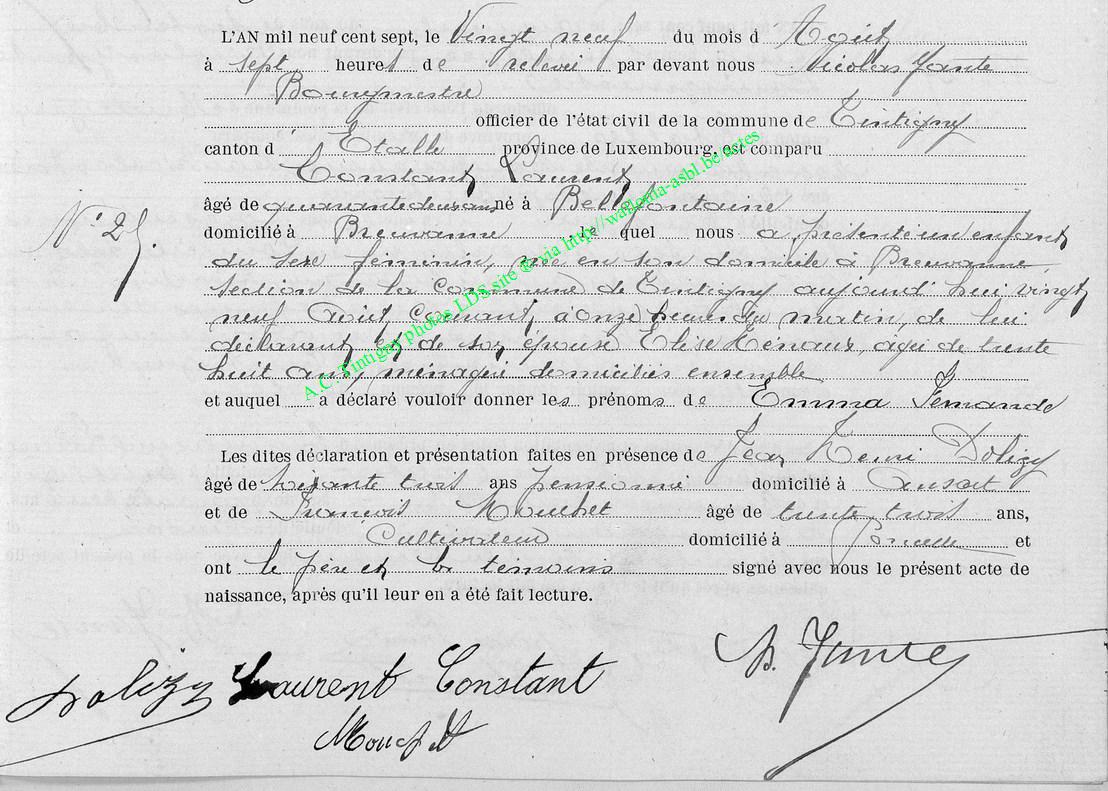 L'AN mil neuf cent sept, le Vingt neuf du mois d Août
à sept heures de relevée par devant nous Nicolas Jante
Bourgmestre
officier de l'état civil de la commune de Tintigny
canton d' Etalle province de Luxembourg, est comparu
Constant Laurent
âgé de quarante deux ans né à Bellefontaine
domicilié à Breuvanne le quel nous a présenté un enfant
du sexe féminin, née en son domicile à Breuvanne
section de la Commune de Tintigny aujourd'hui vingt
neuf Août Courant, à onze heures du matin, de lui
déclarant et de son épouse Elise Hénaux, agée de trente
huit ans, ménagère domiciliés ensemble
et auquel a déclaré vouloir donner les prénoms de Emma Fernande
Les dites déclaration et présentation faites en présence de Jean Henri Dolizy
âgé de trois ans pensionné domicilié à Ansart
et de François Mouchet âgé de trente trois ans,
Cultivateur domicilié à et
ont le père et les témoins signé avec nous le présent acte de
naissance, après qu'il leur en a été fait lecture.
N° 25.
A.C. Tintigny photos LDS site © via http://wallonia-asbl.be/actes
Dolizy Laurent Constant
Mouchet